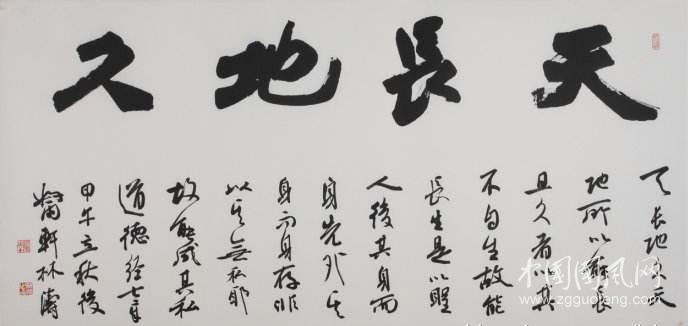 天長地久
天長地久天
地所以能長
且久者以其
不自生故能
長生是以聖
人後其身而
身先外其
身而身存非
以其無私耶
故能成其私
道德經七章
甲午立秋後
軒林濤
中国国风网
www.zgguofeng.com